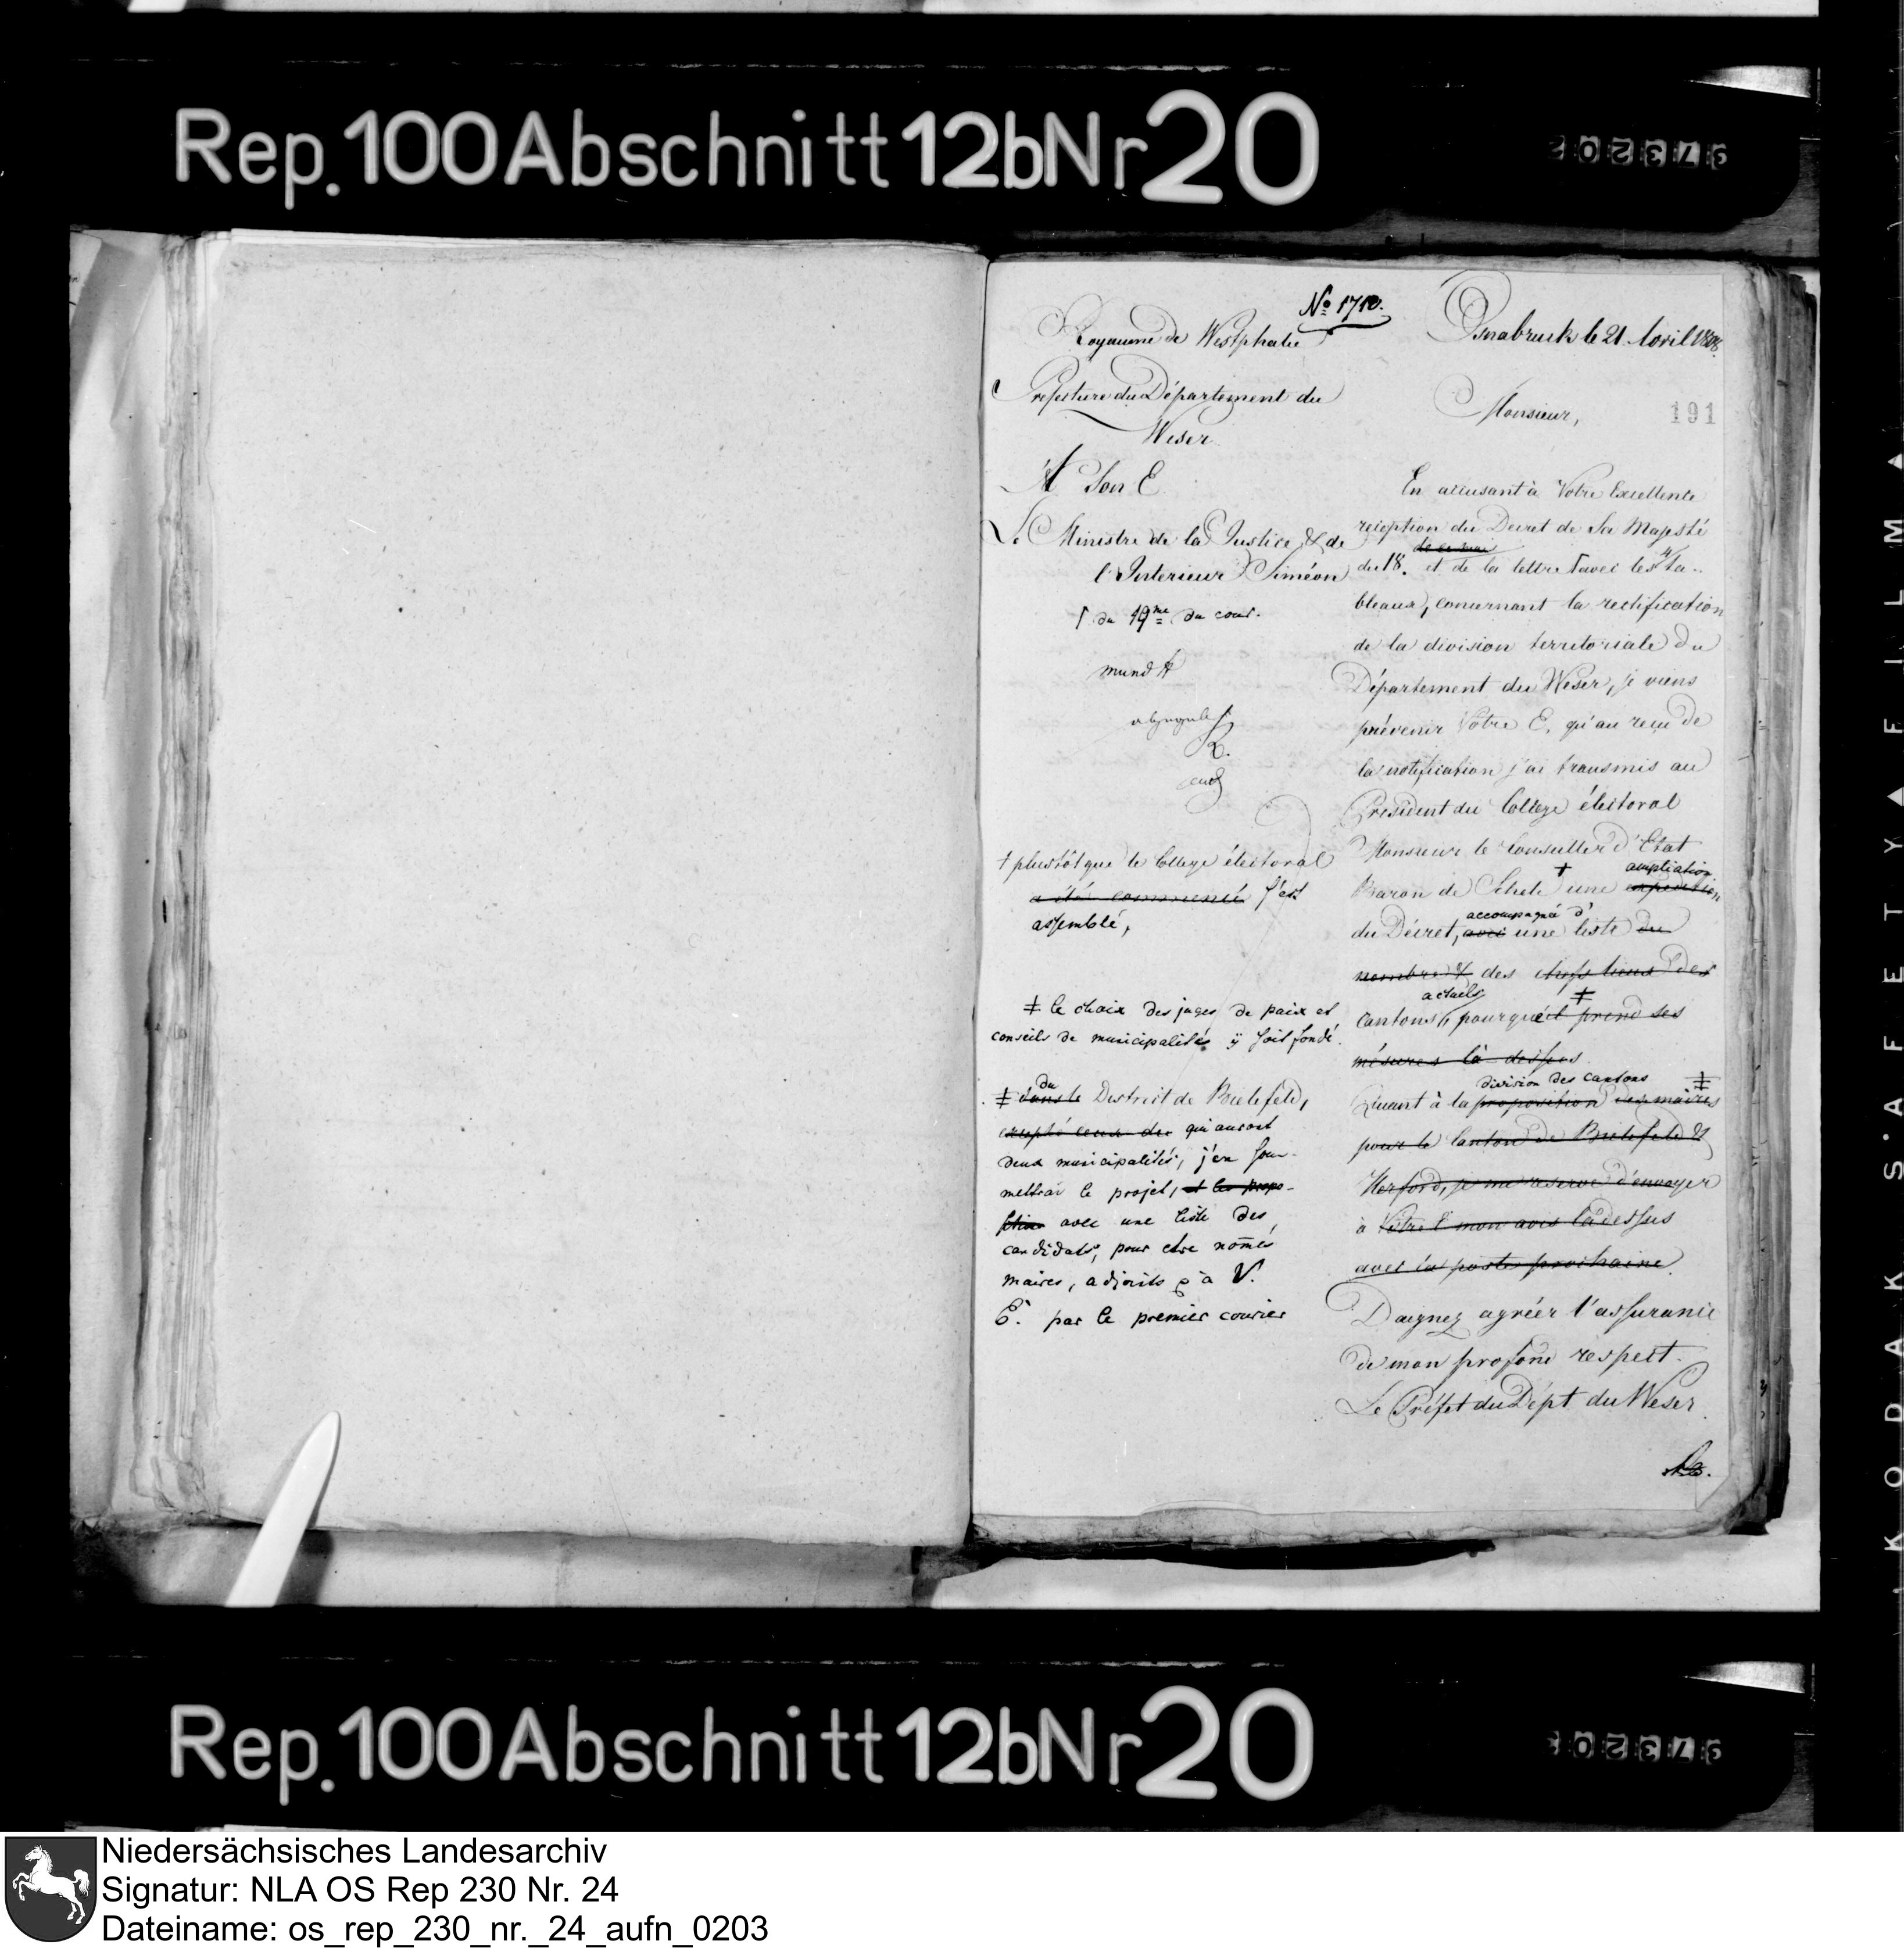 Rep. 100 Abschnitt 12b Nr 20
No 1710.
Royaume de Westphalie
Osnabruck le 21. Avril 1808.
Prefecture du Département du
Weser
Monsieur,
191
A Son E
Le Ministre de la Justice & de
l'Interieur Siméon
Γ du 19me du cour.
mund
† plustôt que le College électoral
a été commencé s'est
assemblé,
‡ le choix des juges de paix et
conseils de municipalités ÿ soit fondé.
du
‡ dans le District de Bielefeld,
excepté ceux de qui auront
deux municipalités, j'en sou-
mettrai le projet, et les propo-
sition avec une liste des
candidats, pour etre només
maires, adjoints à V.
E. par le premier courier
En accusant à Votre Excellence
reception du Decret de Sa Majesté
de ce mois
du 18. et de la lettre Γ avec les 4 ta-
bleaux, concernant la rectification
de la division territoriale du
Département du Weser, je viens
prévenir Votre E. qu'au reçu de
la notification j'ai transmis au
President du College électoral
Monsieur le Conseiller d'Etat
† ampliation
Baron de Schele une expedition
accompagné d'
du Décret, avec une liste du
nombre & des chefs lieux des
actuels ‡
cantons, pourqué il prend ses
mésures là dessus.
division des cantons ‡
Quant à la proposition des maires
pour le Canton de Bielefeld &
Herford, je me reserve d'envoyer
à Votre E mon avis là dessus
avec la poste prochaine.
Daignez agréer l'assurance
de mon profond respect.
Le Préfet du Dépt du Weser
Rep. 100 Abschnitt 12b Nr 20
KODAK SAFETY FILM
Niedersächsisches Landesarchiv
Signatur: NLA OS Rep 230 Nr. 24
Dateiname: os_rep_230_nr._24_aufn_0203